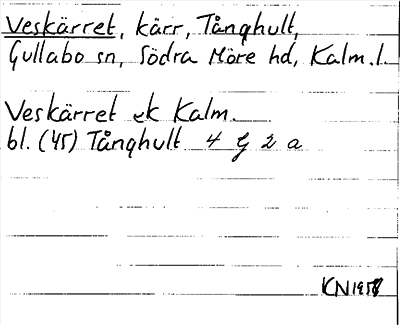 Veskärret, kärr, Tånghult,
Gullabo sn, Södra Möre hd, Kalm.l.
Veskärret ek Kalm.
bl. (45) Tånghult 4 G 2 a
KN 1958